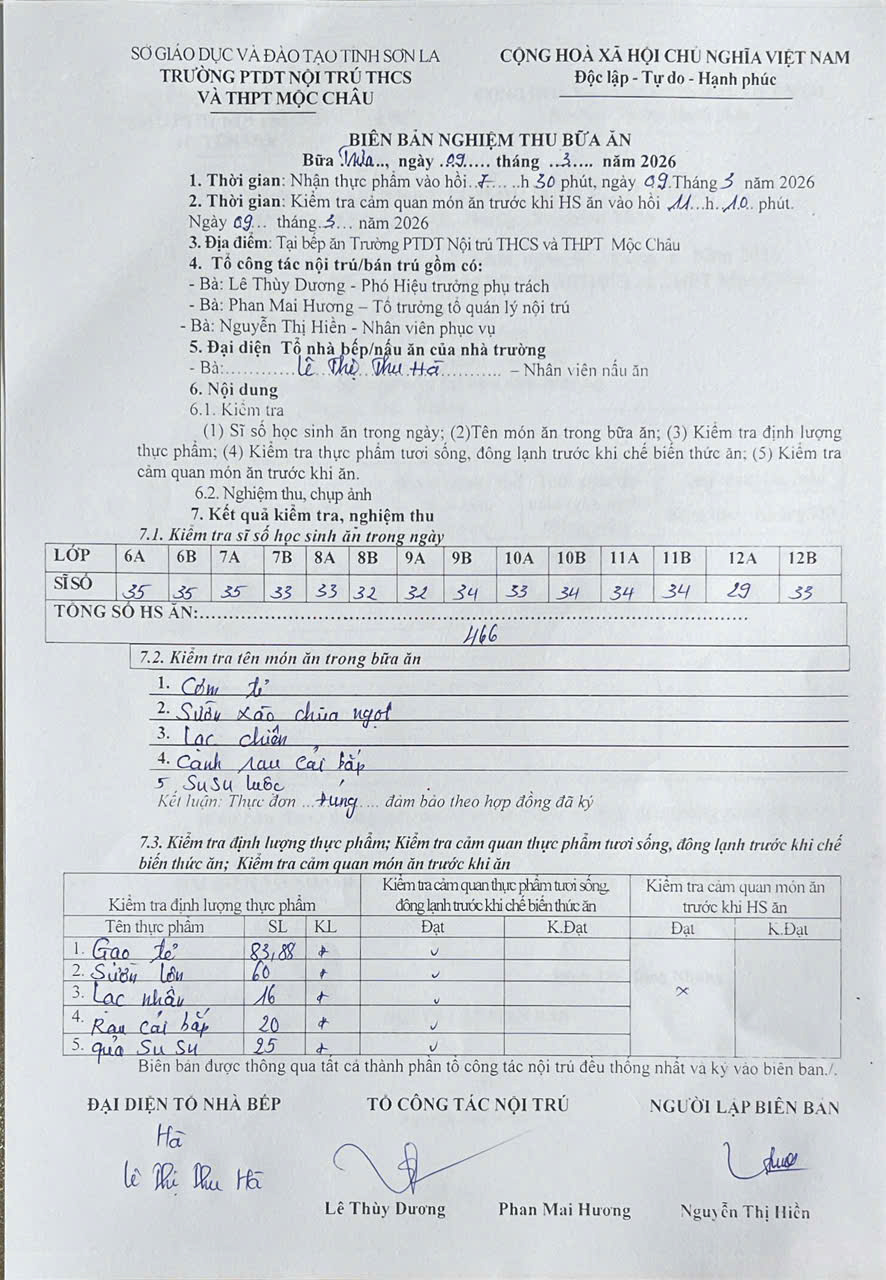 SỞ GIÁO DỤC VÀ ĐÀO TẠO TỈNH SƠN LA
TRƯỜNG PTDT NỘI TRÚ THCS
VÀ THPT MỘC CHÂU
CỘNG HOÀ XÃ HỘI CHỦ NGHĨA VIỆT NAM
Độc lập - Tự do - Hạnh phúc
BIÊN BẢN NGHIỆM THU BỮA ĂN
Bữa Trưa.., ngày .09..... tháng ..3.... năm 2026
1. Thời gian: Nhận thực phẩm vào hồi..7.... ..h 30 phút, ngày 09.Tháng 3 năm 2026
2. Thời gian: Kiểm tra cảm quan món ăn trước khi HS ăn vào hồi 11...h..10.. phút.
Ngày 09... tháng.3... năm 2026
3. Địa điểm: Tại bếp ăn Trường PTDT Nội trú THCS và THPT Mộc Châu
4. Tổ công tác nội trú/bán trú gồm có:
- Bà: Lê Thùy Dương - Phó Hiệu trưởng phụ trách
- Bà: Phan Mai Hương – Tổ trưởng tổ quản lý nội trú
- Bà: Nguyễn Thị Hiền - Nhân viên phục vụ
5. Đại diện Tổ nhà bếp/nấu ăn của nhà trường
- Bà:............Lê..Thị..Thu.Hà........... – Nhân viên nấu ăn
6. Nội dung
6.1. Kiểm tra
(1) Sĩ số học sinh ăn trong ngày; (2)Tên món ăn trong bữa ăn; (3) Kiểm tra định lượng
thực phẩm; (4) Kiểm tra thực phẩm tươi sống, đông lạnh trước khi chế biến thức ăn; (5) Kiểm tra
cảm quan món ăn trước khi ăn.
6.2. Nghiệm thu, chụp ảnh
7. Kết quả kiểm tra, nghiệm thu
7.1. Kiểm tra sĩ số học sinh ăn trong ngày
LỚP 6A 6B 7A 7B 8A 8B 9A 9B 10A 10B 11A 11B 12A 12B
SĨ SỐ 35 35 35 33 33 32 32 34 33 34 34 34 29 33
TỔNG SỐ HS ĂN:..........................................................
466
7.2. Kiểm tra tên món ăn trong bữa ăn
1. Cơm tẻ
2. Sườn xào chua ngọt
3. Lạc chiên
4. Canh rau cải bắp
5. Su Su luộc
Kết luận: Thực đơn ...đúng.... đảm bảo theo hợp đồng đã ký
7.3. Kiểm tra định lượng thực phẩm; Kiểm tra cảm quan thực phẩm tươi sống, đông lạnh trước khi chế
biến thức ăn; Kiểm tra cảm quan món ăn trước khi ăn
Kiểm tra định lượng thực phẩm
Kiểm tra cảm quan thực phẩm tươi sống,
đông lạnh trước khi chế biến thức ăn
Kiểm tra cảm quan món ăn
trước khi HS ăn
Tên thực phẩm SL KL Đạt K.Đạt Đạt K.Đạt
1. Gạo tẻ 83,88 + ✓
2. Sườn lợn 60 + ✓
3. Lạc nhân 16 + ✓ ×
4. Rau cải bắp 20 + ✓
5. quả Su Su 25 + ✓
Biên bản được thông qua tất cả thành phần tổ công tác nội trú đều thống nhất và ký vào biên bản./.
ĐẠI DIỆN TỔ NHÀ BẾP
TỔ CÔNG TÁC NỘI TRÚ
NGƯỜI LẬP BIÊN BẢN
Hà
Lê Thị Thu Hà
Lê Thùy Dương
Phan Mai Hương
Nguyễn Thị Hiền